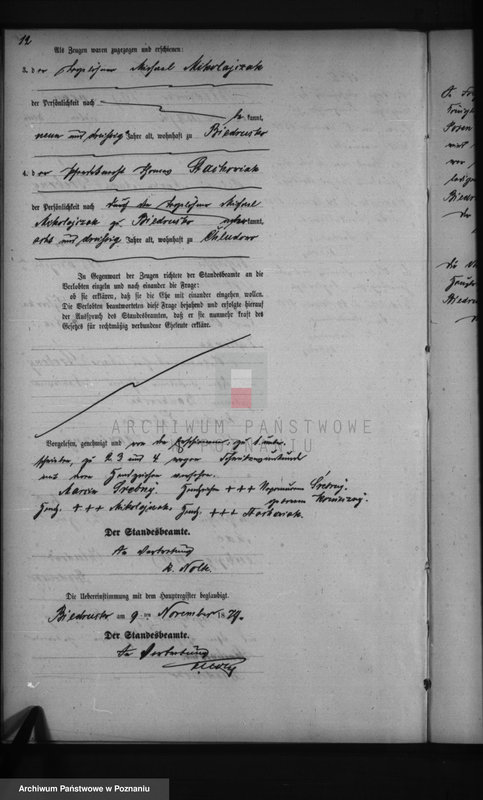 12
Als Zeugen waren zugezogen und erschienen:
3. der Tagelöhner Michael Mikolajczak
der Persönlichkeit nach
be kannt,
neun und dreißig Jahre alt, wohnhaft zu Biedrusko
4. der
der Persönlichkeit nach durch den Tagelöhner Michael
Mikolajczak zu Biedrusko kannt,
acht und dreißig Jahre alt, wohnhaft zu Chludowo
In Gegenwart der Zeugen richtete der Standesbeamte an die
Verlobten einzeln und nach einander die Frage:
ob sie erkläre, daß sie die Ehe mit einander eingehen wollen.
Die Verlobten beantworteten diese Frage bejahend und erfolgte hierauf
der Ausspruch des Standesbeamten, daß er sie nunmehr kraft des
Gesetzes für rechtmäßig verbundene Eheleute erkläre.
ARCHIWUM PAŃSTWOWE
W POZNANIU
Vorgelesen, genehmigt und von den Erschienenen, zu 1 unter-
schrieben, zu 2 3 und 4 wegen Schreibensunkunde
mit ihren Handzeichen versehen.
Marcin Sredny. Handzeichen +++ Sredny,
geborene
Handz. +++ Mikolajczak, Handz. +++
Der Standesbeamte.
In Vertretung
Nolte.
Die Uebereinstimmung mit dem Hauptregister beglaubigt.
Biedrusko am 9 ten November 1879.
Der Standesbeamte.
In Vertretung
Archiwum Państwowe w Poznaniu